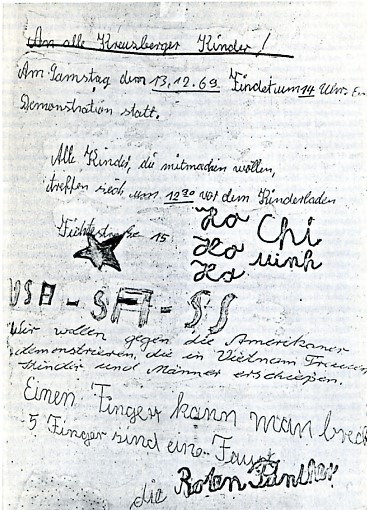 An alle Kreuzberger Kinder!
Am Samstag dem 13.12.69 findet um 14 Uhr. Ein
Demonstration statt.
Alle Kinder, die mitmachen wollen,
treffen sich um 12 30 vor dem Kinderladen
15
Ho Chi
Ho minh
Ho
USA - SA - SS
Wir wollen gegen die Amerikaner
demonstrieren, die in Vietnam Frauen
Kinder und Männer erschießen.
Einen Finger kann man brech
5 Finger sind eine Faust
die Roten Panther